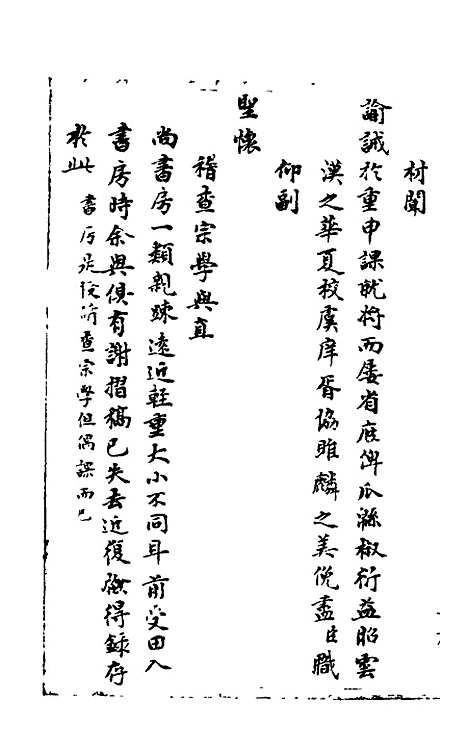 材聞
諭誡於重申課就將而屡省庶俾瓜緜椒衍益昭雲
漢之華夏校虞庠胥協雎麟之美俛盡臣職
仰副
聖懷
稽查宗學與直
尚書房一類親疎遠近輕重大小不同耳前受田入
書房時余與俱有謝摺稿已失去近復檢得録存
於此 書房是後所查宗學但偶課而已